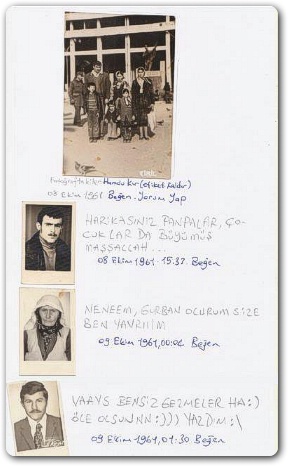 Fotoğraftakiler: Hamdu Kır (etiket kaldır)
08 Ekim 1961 Beğen . Yorum Yap
HARİKASINIZ PANPALAR, ÇO-
CUKLAR DA BÜYÜMÜŞ
MAŞŞALLAH...
08 Ekim 1961 - 15:37 Beğen
NENEEM, GURBAN OLURUM SİZE
BEN YAVRIIIM
09 Ekim 1961, 00:02 Beğen
VAAYS BENSİZ GEZMELER HA:)
ÖLE OLSUNNN:))) YAZDIM:\
09 Ekim 1961, 01:30 Beğen